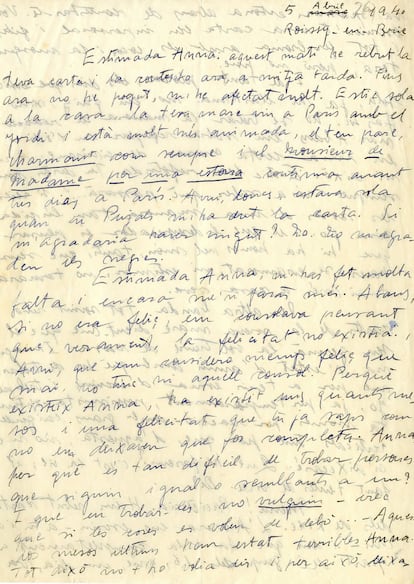 5 Abril 1940
Roissy-en-Brie
Estimada Anna: aquest matí he rebut la
teva carta i la contesto ara, a mitja tarda. Fins
ara no he pogut, m'he afectat molt. Estic sola
a la casa. La teva mare en a París amb el
i està molt més animada, el teu pare,
charmant com sempre i el monsieur de
madame per una estona continua anant
tres dies a París. Avui, doncs, estava sola
quan en m'ha dut la carta. Si
m'agradaria haver ? No. No m'agra
den els negres.
Estimada Anna, m'has fet molta
falta i encara me'n faràs més. Abans,
si no era feliç em consolava pensant
que, verament, la felicitat no existia i
Avui, que em considero menys feliç que
mai, no tinc ni aquell consol. Perquè
existeix Anna, ha existit uns quants me
sos i una felicitat que tu ja saps com
no em deixaven que fos completa. Anna
per què és tan difícil de trobar persones
que siguin igual o semblants a un?
I que en trobar-les, no vulguin - crec
que si les coses es volen de debò... Aques
ts mesos últims han estat terribles Anna.
Tot això no t'ho volia dir i per això deixa